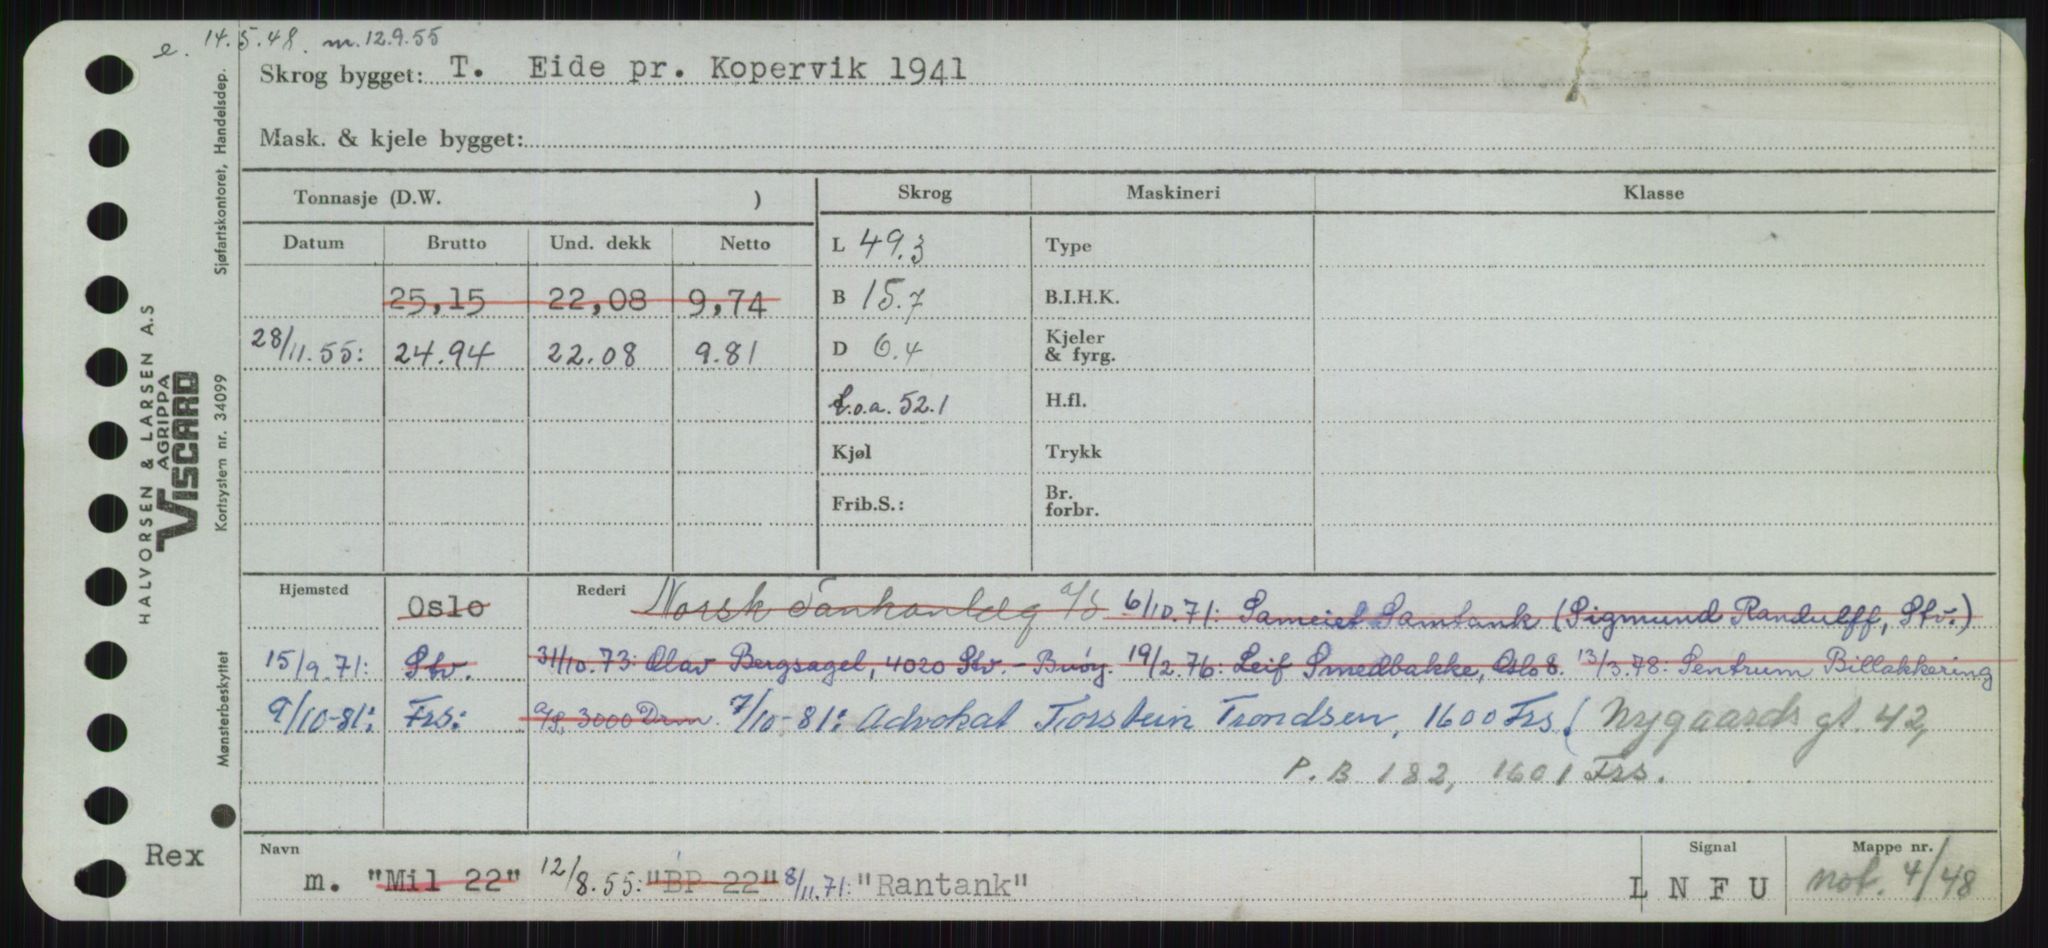 e. 14.5.48. m.12.9.55
Skrog bygget: T. Eide pr. Kopervik 1941
Mask. & kjele bygget:
Tonnasje (D.W. )
Skrog
Maskineri
Klasse
Datum Brutto Und. dekk Netto
L 49.3
Type
25,15 22,08 9,74
B 15.7
B.I.H.K.
28/11.55: 24.94 22.08 9.81
D 6.4
Kjeler
& fyrg.
L.o.a. 52.1
H.fl.
Kjøl
Trykk
Frib.S.:
Br.
forbr.
Hjemsted Oslo Rederi Norsk Tankanlæg a/s 6/10.71: Sameiet Samtank (Sigmund Randulff, Stv.)
15/9.71: Stv. 31/10.73: Olav Bergsagel, 4020 Stv. - Buøy. 19/2.76: Leif Smedbakke, Oslo 8. 13/3.78: Sentrum Billakkering
9/10-81: Frs: a/s, 3000 Drm. 7/10-81: Advokat Torstein Trondsen, 1600 Frs. ( Nygaards gt. 42,
P.B 182, 1601 Frs.
Navn
Signal
Mappe nr.
Rex
m. "Mil 22" 12/8.55: "BP 22" 8/11.71: "Rantank"
L N F U
not. 4/48
HALVORSEN & LARSEN A.S
AGRIPPA
VISCARD
Mønsterbeskyttet Kortsystem nr. 34099 Sjøfartskontoret, Handelsdep.